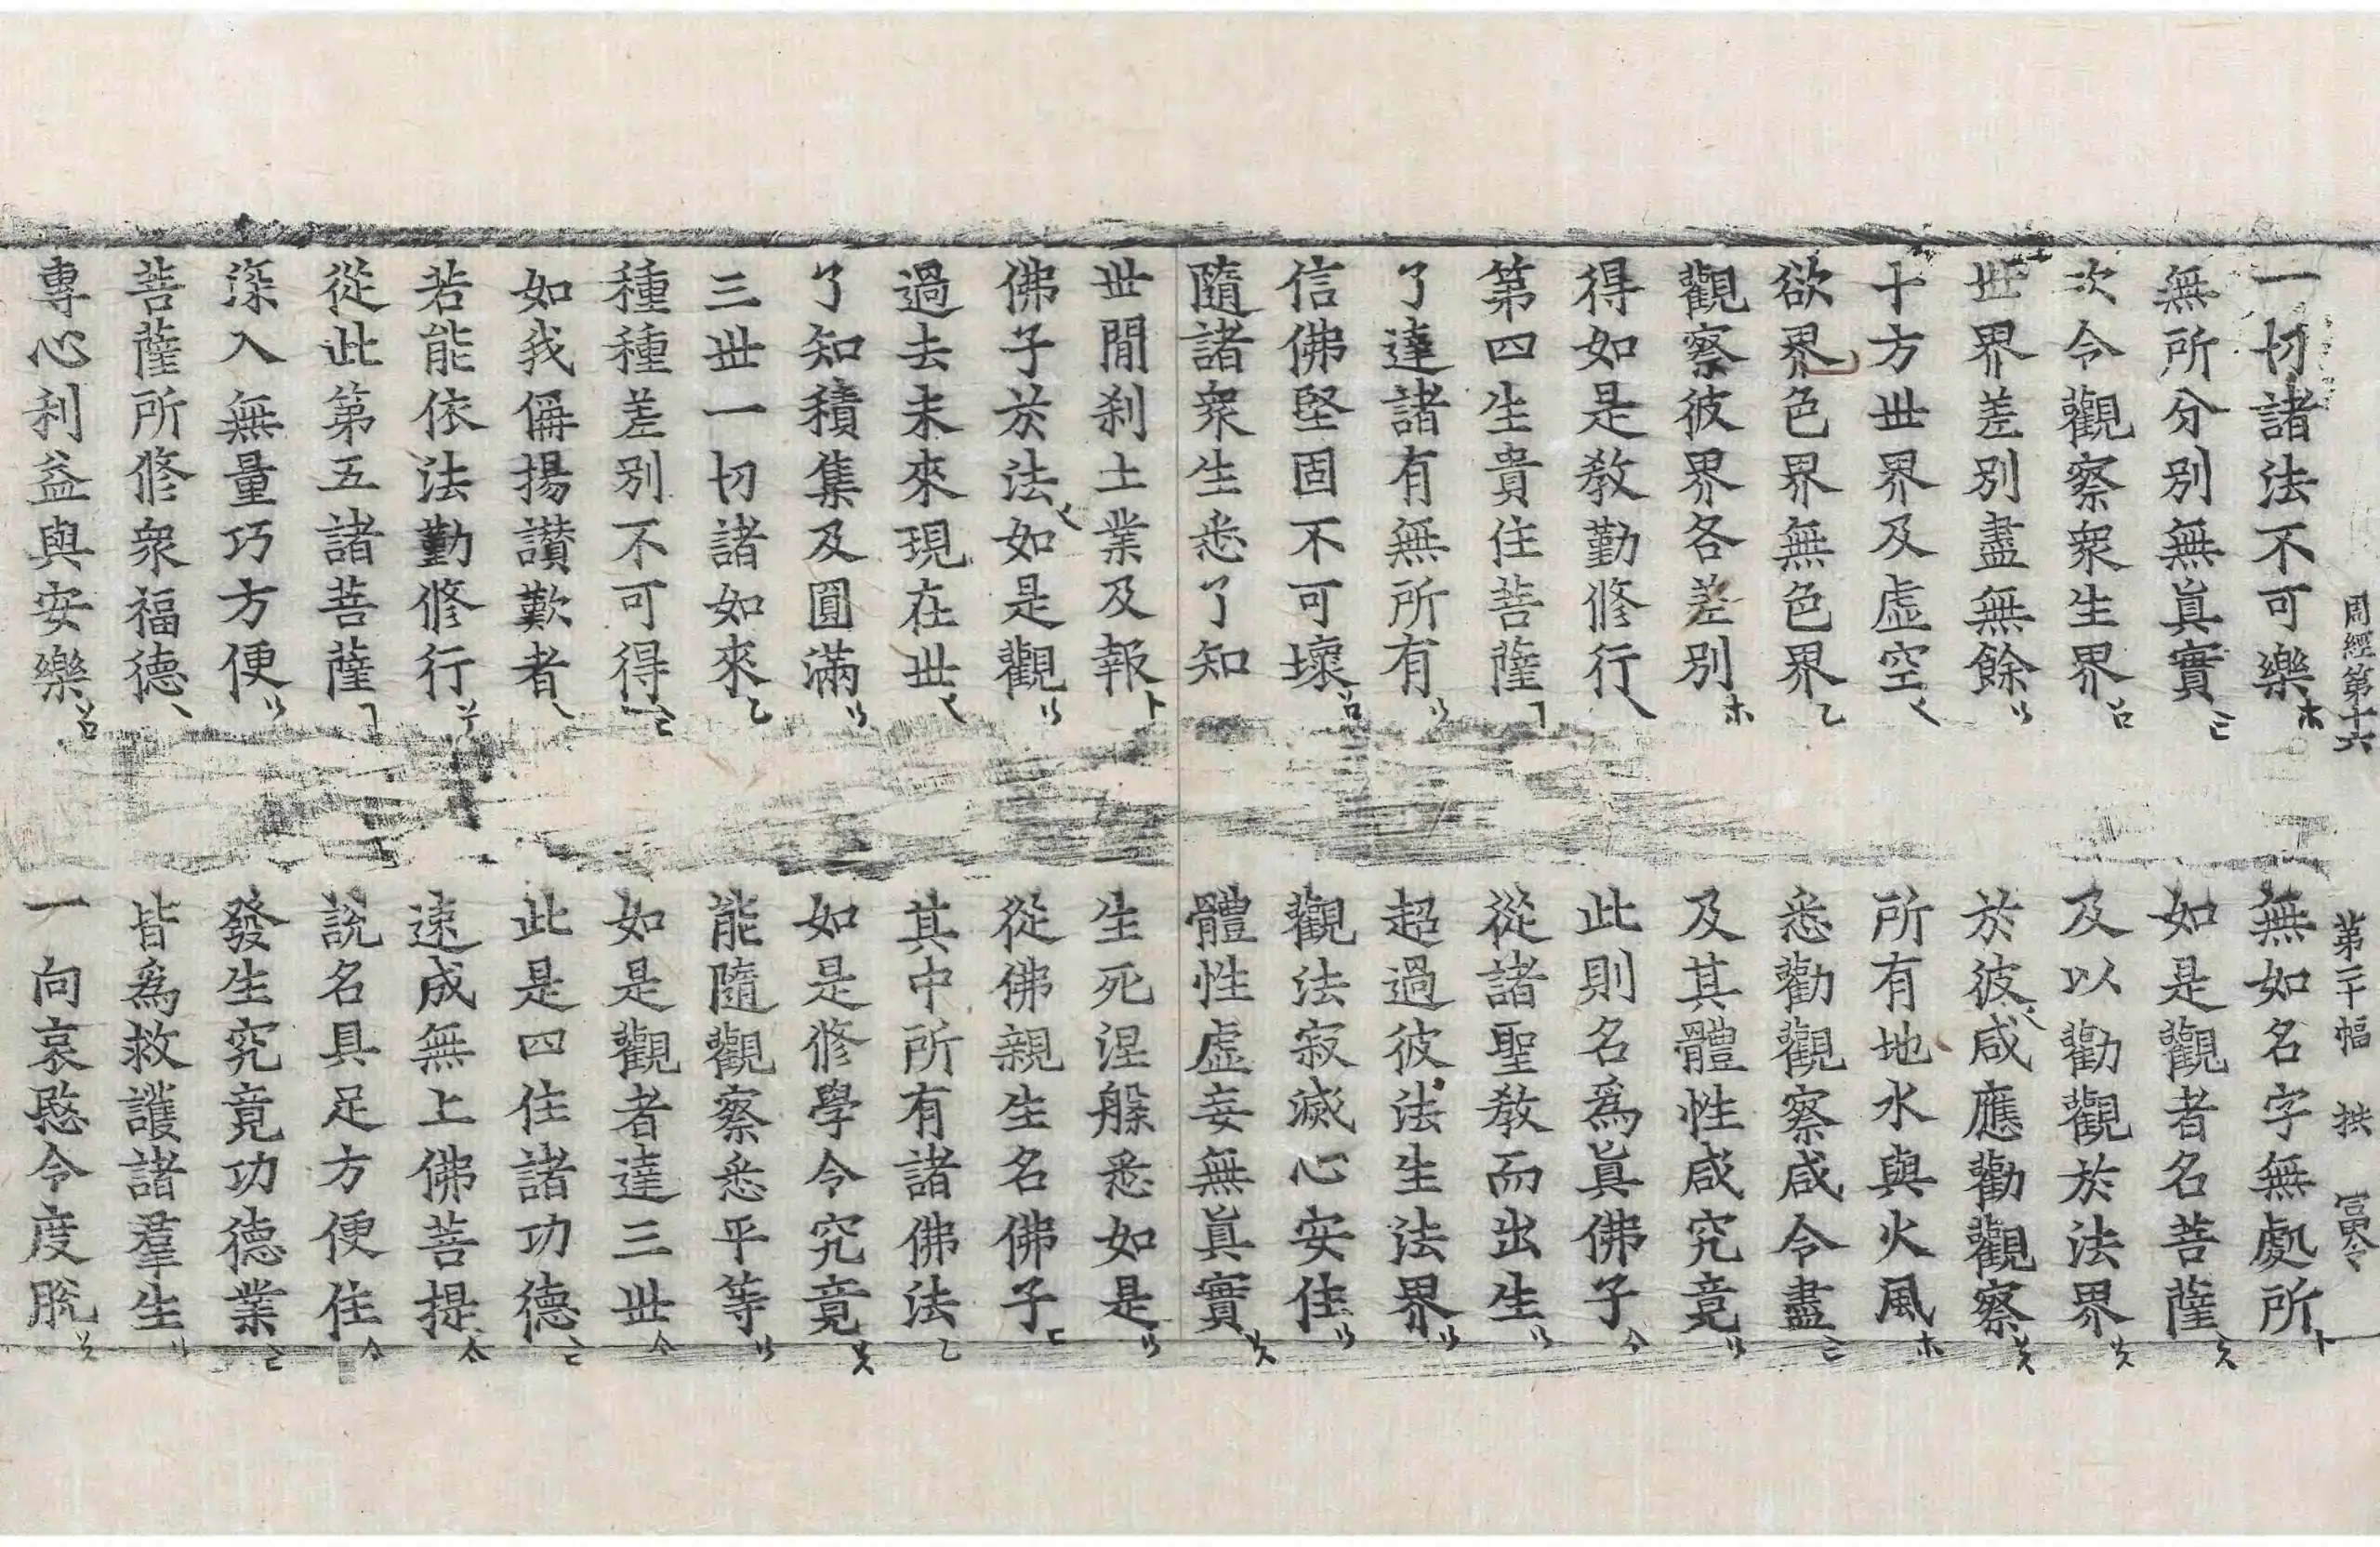 周經第十六 第二十幅 拱
一切諸法不可樂 無如名字無處所
無所分別無眞實 如是觀者名菩薩
次令觀察衆生界 及以勸觀於法界
世界差別盡無餘 於彼咸應勸觀察
十方世界及虛空 所有地水與火風
欲界色界無色界 悉勸觀察咸令盡
觀察彼界各差別 及其體性咸究竟
得如是敎勤修行 此則名爲眞佛子
第四生貴住菩薩 從諸聖敎而出生
了達諸有無所有 超過彼法生法界
信佛堅固不可壞 觀法寂滅心安住
隨諸衆生悉了知 體性虛妄無眞實
世閒刹土業及報 生死涅槃悉如是
佛子於法如是觀 從佛親生名佛子
過去未來現在世 其中所有諸佛法
了知積集及圓滿 如是修學令究竟
三世一切諸如來 能隨觀察悉平等
種種差別不可得 如是觀者達三世
如我偁揚讃歎者 此是四住諸功德
若能依法勤修行 速成無上佛菩提
從此第五諸菩薩 說名具足方便住
深入無量巧方便 發生究竟功德業
菩薩所修衆福德 皆爲救護諸羣生
專心利益與安樂 一向哀愍令度脫